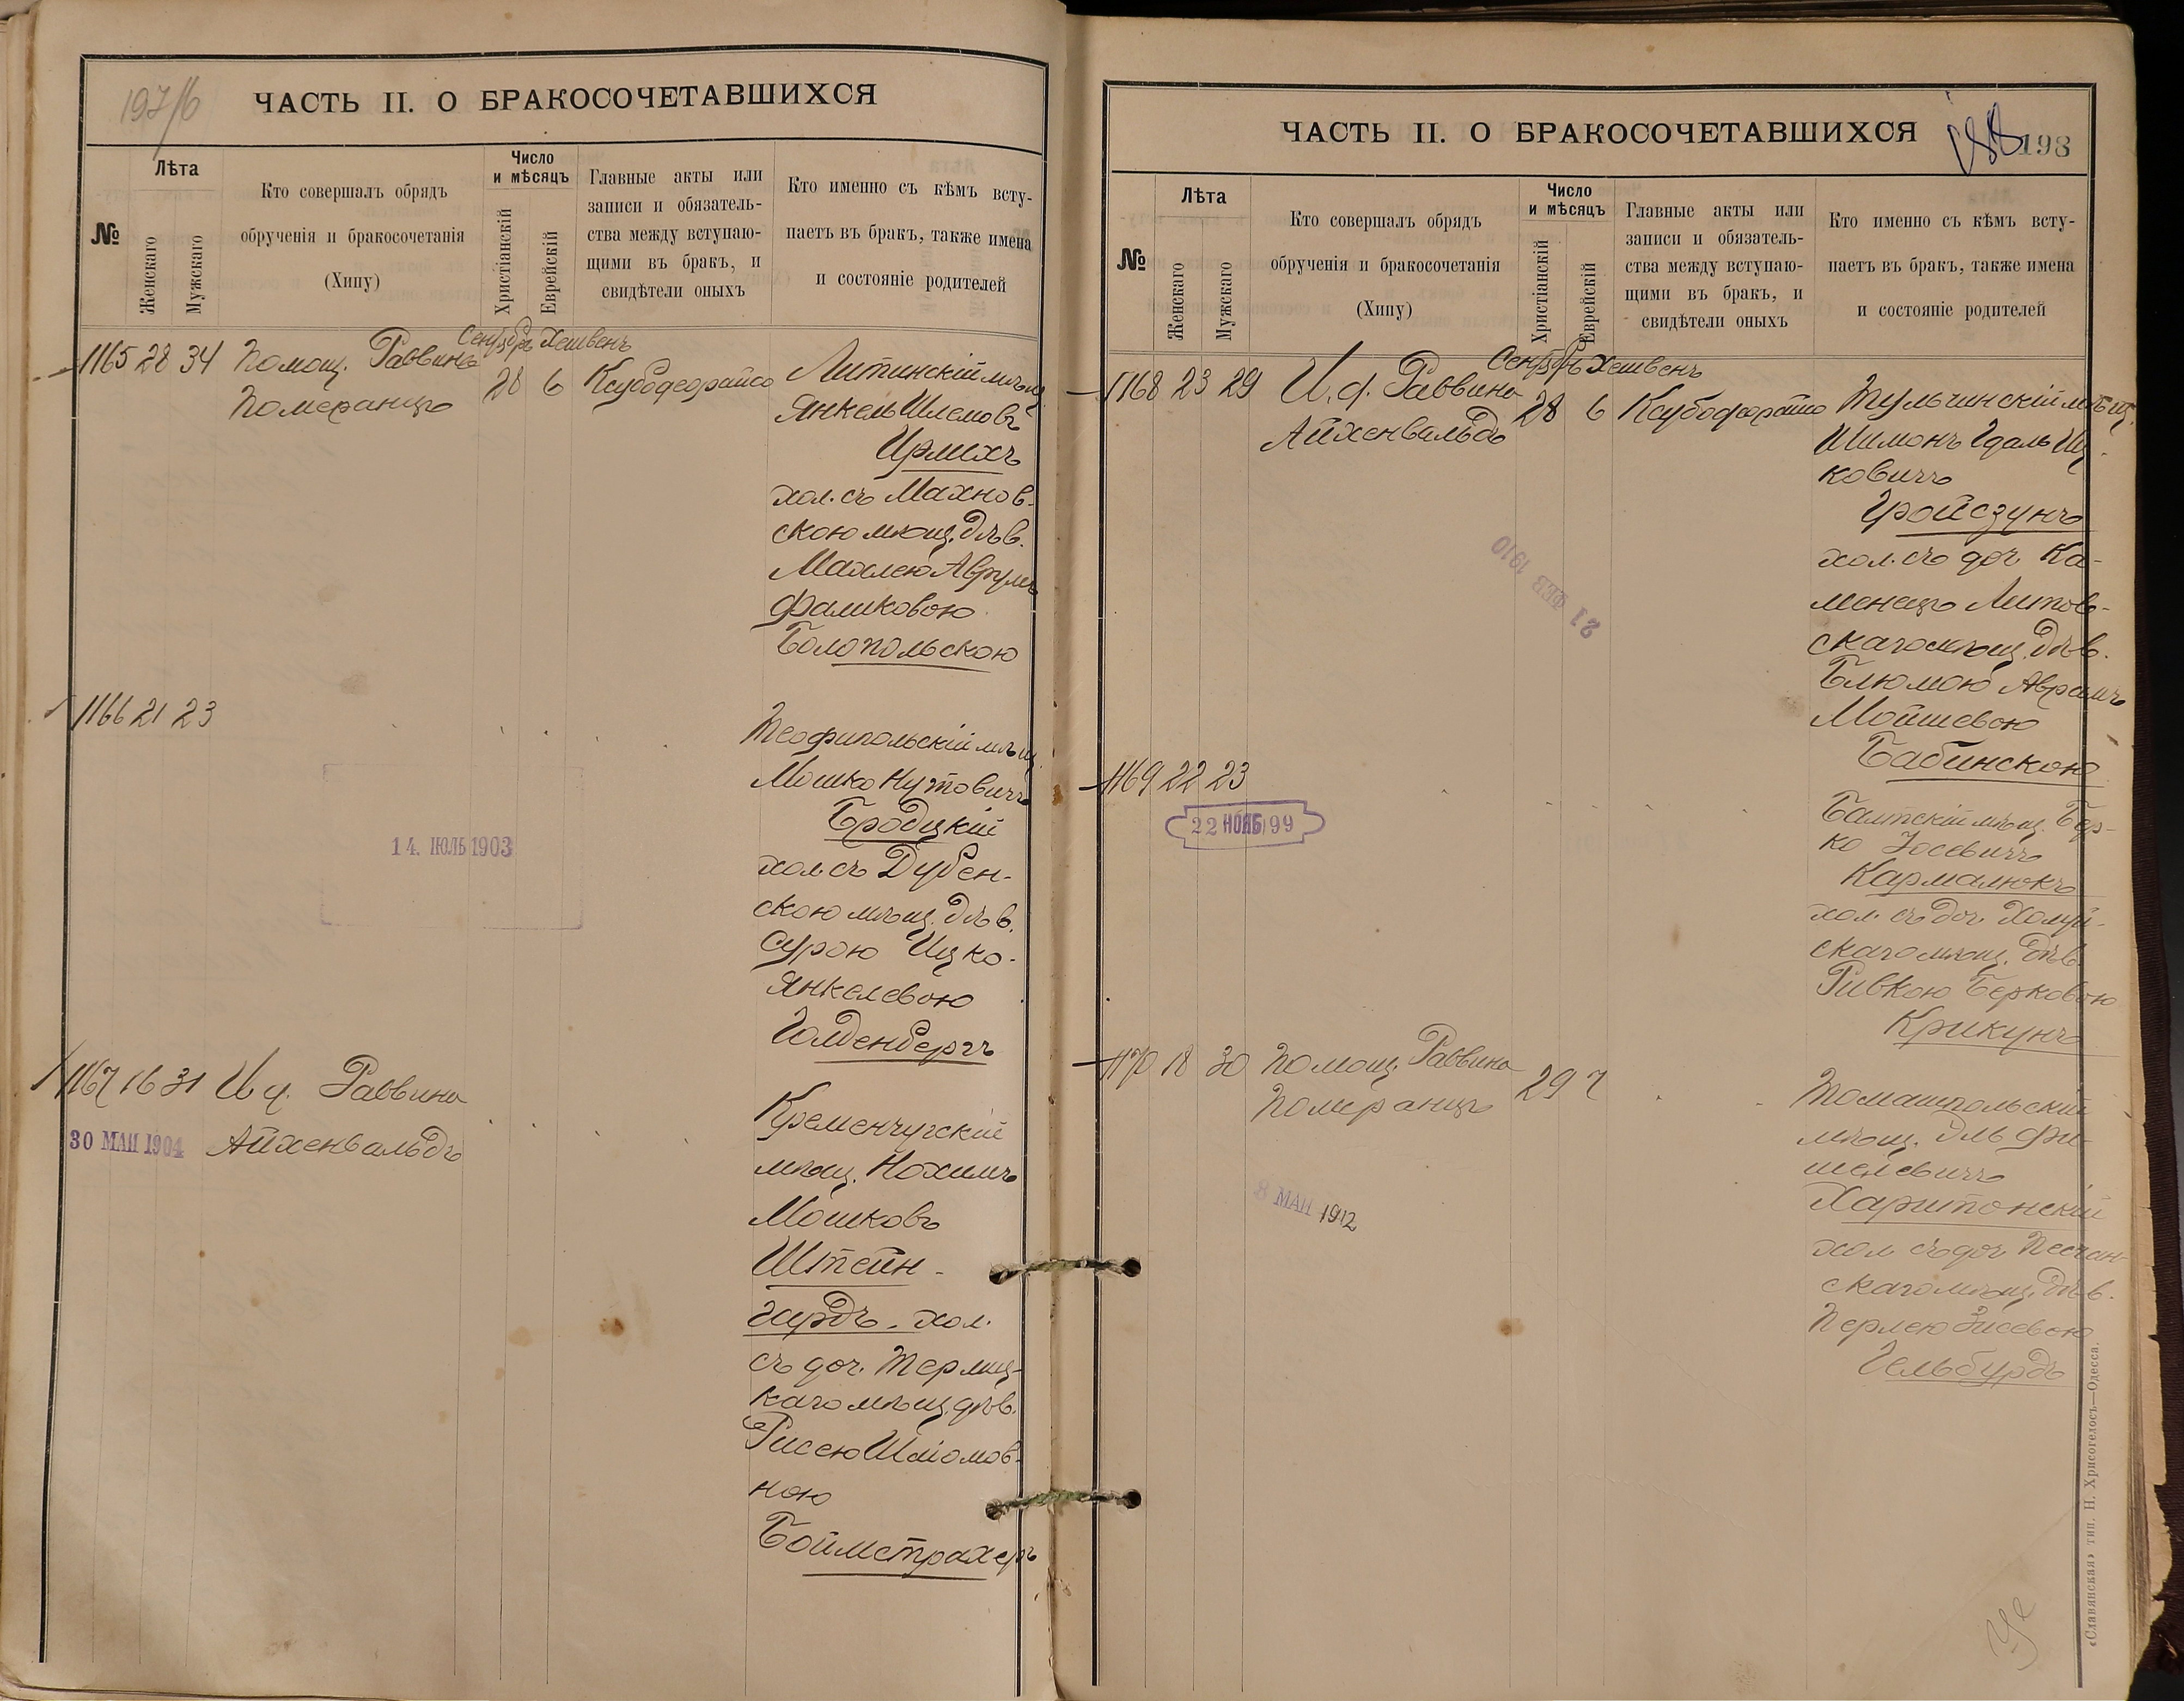 197/б
ЧАСТЬ II. О БРАКОСОЧЕТАВШИХСЯ
№
Лѣта
Женскаго
Мужскаго
Кто совершалъ обрядъ
обрученія и бракосочетанія
(Хипу)
Число
и мѣсяцъ
Христіанскій
Еврейскій
Главные акты или
записи и обязатель-
ства между вступаю-
щими въ бракъ, и
свидѣтели оныхъ
Кто именно съ кѣмъ всту-
паетъ въ бракъ, также имена
и состояніе родителей
Сентябрь Хешвенъ
1165 28 34 Помощ. Раввина
Померанцъ
28 6 Ксубодеорайсо
Литинскій мѣщ.
Янкель Шлемовъ
Ирлихъ
хол. съ Махнов-
скою мѣщ. дѣв.
Махлею Аврумъ
Фаликовою
Бѣлопольскою
1166 21 23
Теофипольскій мѣщ.
Мошко Нутовичъ
Бродцкій
хол. съ Дубен-
скою мѣщ. дѣв.
Сурою Ицко-
Янкелевою
Голденбергъ
14. ІЮЛЬ 1903
1167 16 31 И ф. Раввина
Айхенвальдъ
30 МАИ 1904
Кременчугскій
мѣщ. Нохимъ
Мошковъ
Штейн-
гардъ. хол.
съ доч. Терлиц-
каго мѣщ. дѣв.
Рисею Шліомов-
ною
Боймстрахеръ
ЧАСТЬ II. О БРАКОСОЧЕТАВШИХСЯ
198
№
Лѣта
Женскаго
Мужскаго
Кто совершалъ обрядъ
обрученія и бракосочетанія
(Хипу)
Число
и мѣсяцъ
Христіанскій
Еврейскій
Главные акты или
записи и обязатель-
ства между вступаю-
щими въ бракъ, и
свидѣтели оныхъ
Кто именно съ кѣмъ всту-
паетъ въ бракъ, также имена
и состояніе родителей
Сентябрь Хешвенъ
1168 23 29 И. ф. Раввина
Айхенвальдъ
28 6 Ксубодеорайсо
Тульчинскій мѣщ.
Шимонъ Гдаль Иц-
ковичъ
Гройсзунъ
хол. съ доч. Ка-
менецъ Литов-
скаго мѣщ. дѣв.
Блюмою Аврамъ
Мойшевою
Бабинскою
21 ФЕВ 1910
1169 22 23
22 НОЯБ 99
Балтскій мѣщ. Бер-
ко Іосевичъ
Кармалюкъ
хол. съ доч.
скаго мѣщ. дѣв.
Ривкою Берковою
Крикунъ
1170 18 30 Помощ. Раввина
Померанцъ
29 7
8 МАИ 1912
Томашпольскій
мѣщ. Эль Фи-
шелевичъ
Харитонскій
хол съ доч Песчан-
скаго мѣщ. дѣв.
Перлею Зисевою
Гельбурдъ
«Славянская» тип. Н. Хрисогелосъ—Одесса.